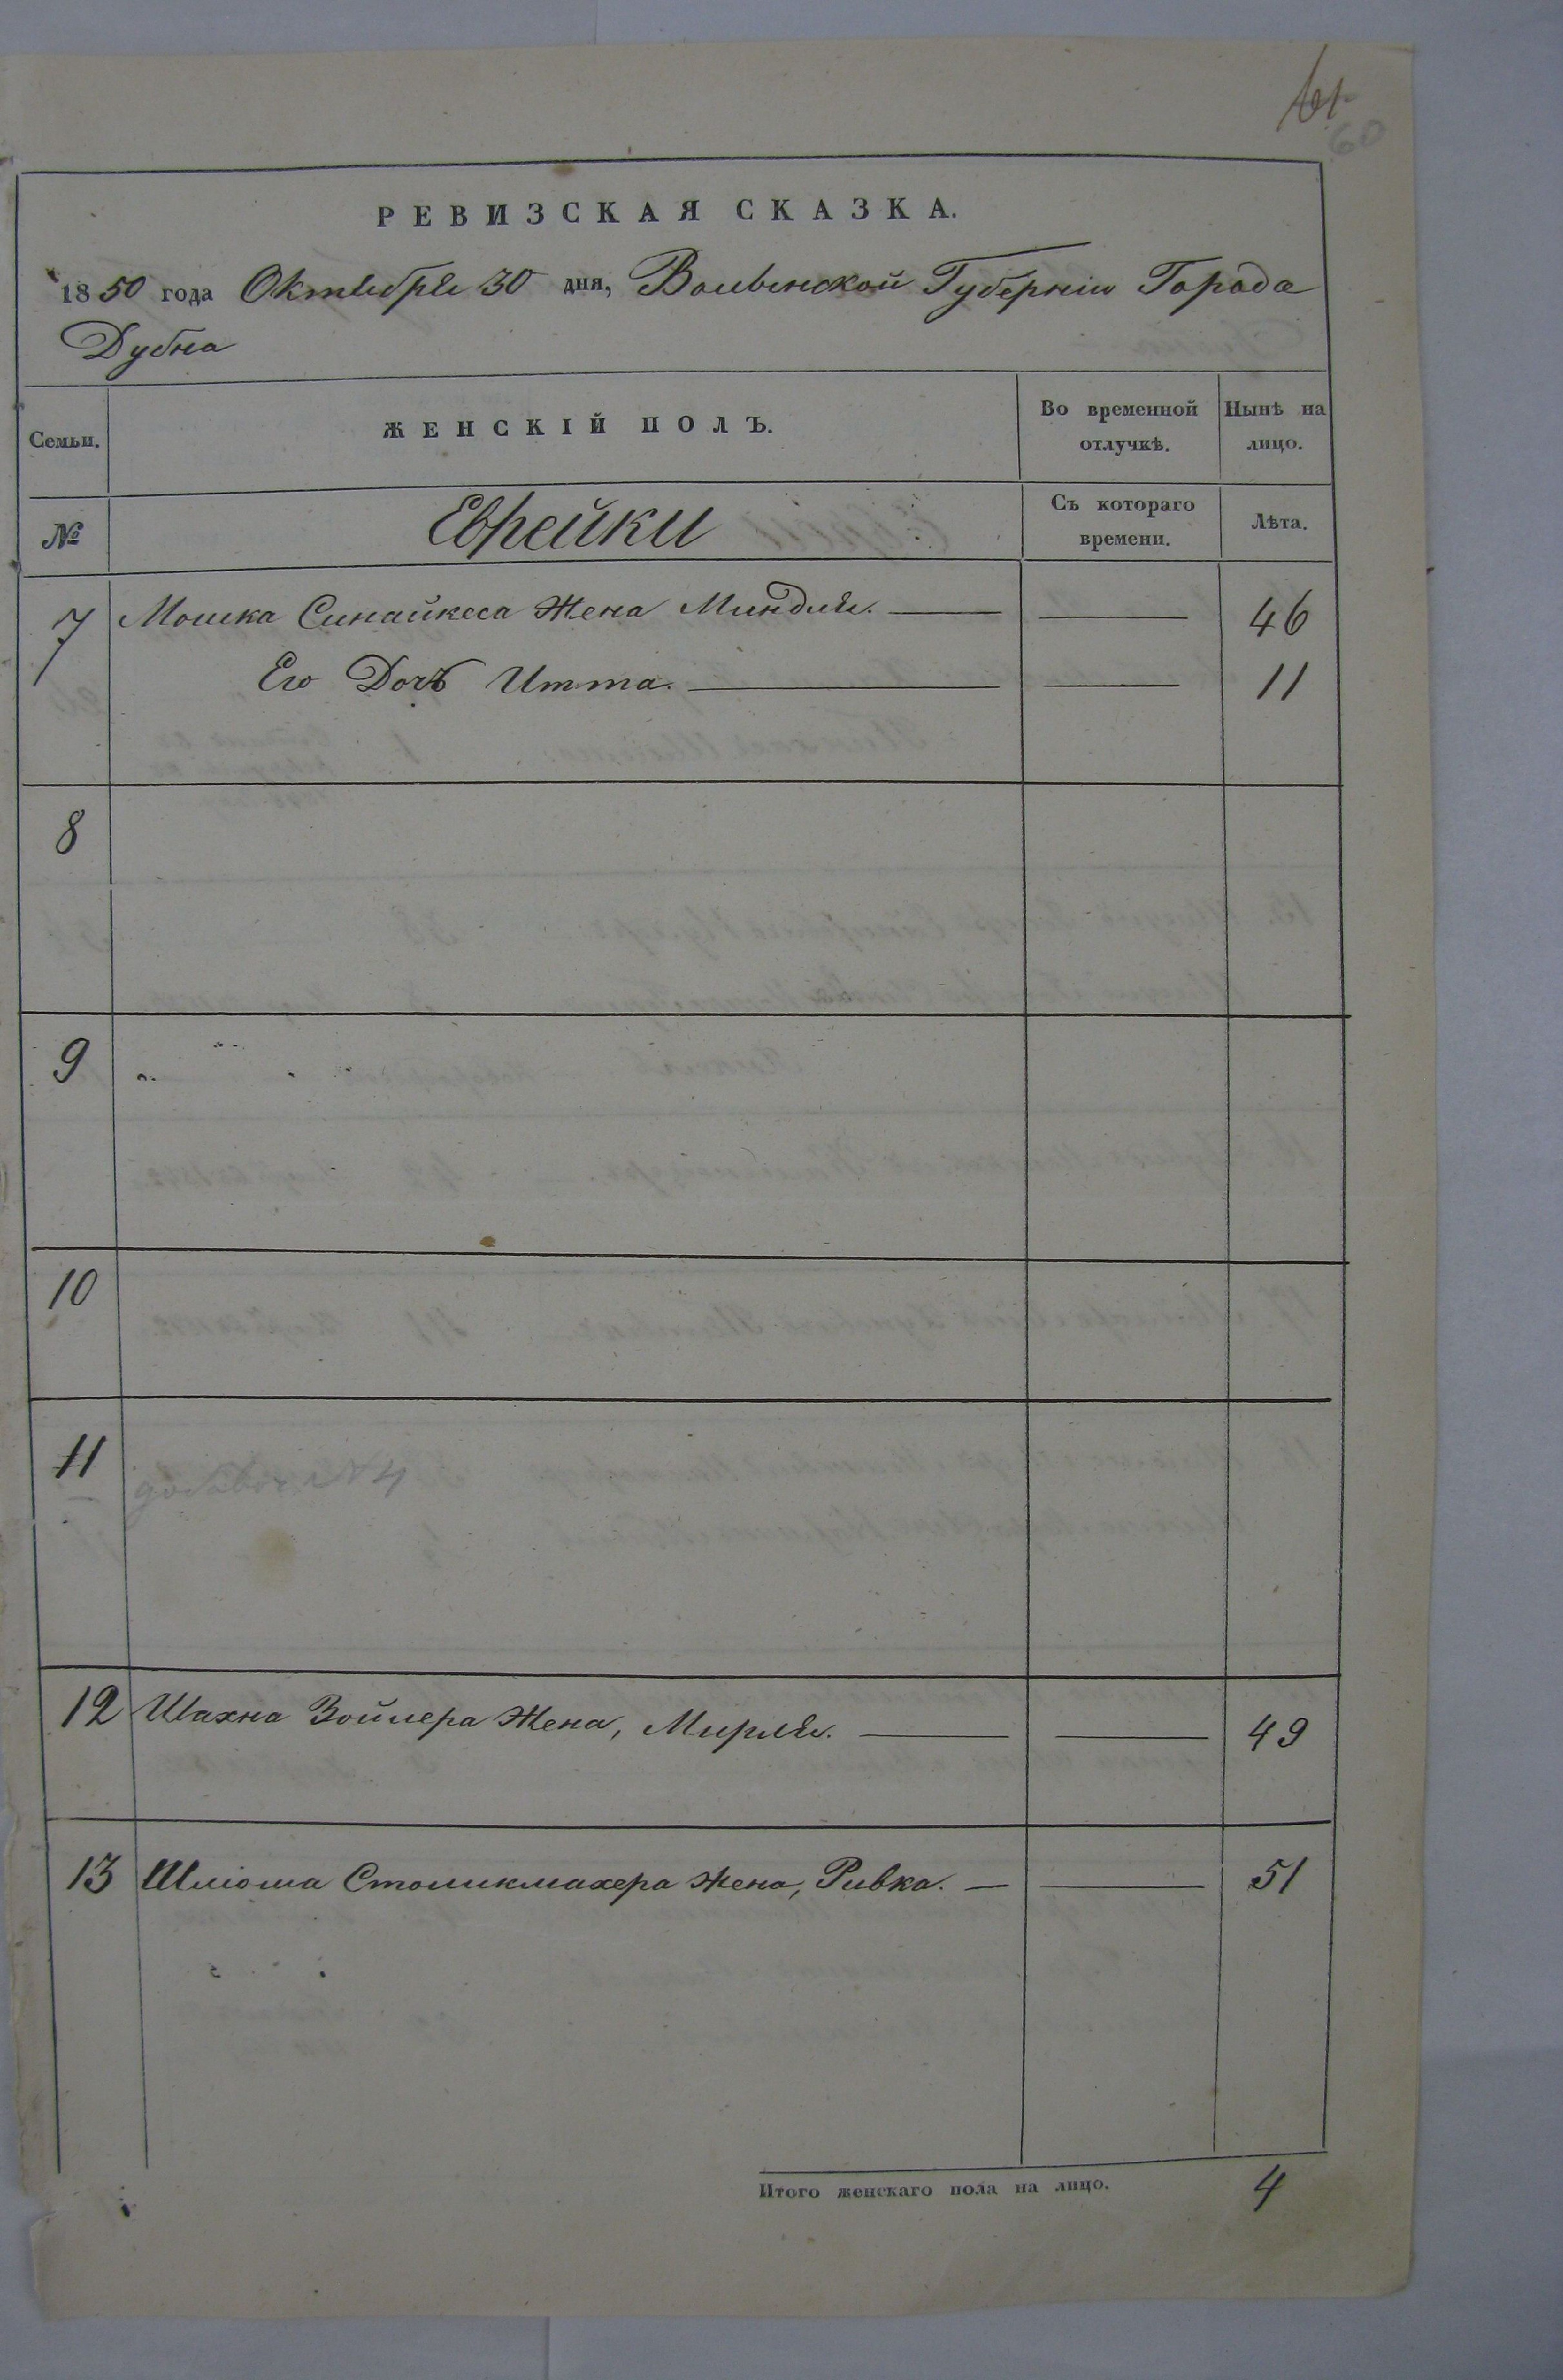 61
60
РЕВИЗСКАЯ СКАЗКА.
1850 года Октября 30 дня, Волынской Губерніи Города
Дубна
Семьи. ЖЕНСКІЙ ПОЛЪ. Во временной отлучкѣ. Нынѣ на лицо.
№ Еврейки Съ котораго времени. Лѣта.
7 Мошка Синайкеса Жена Миндля. — — 46
Его Дочь Итта. — — 11
8
9
10
11
12 Шахна Зойлера Жена, Мирля. — — 49
13 Шліома Столикмахера жена, Ривка. — — 51
Итого женскаго пола на лицо. 4